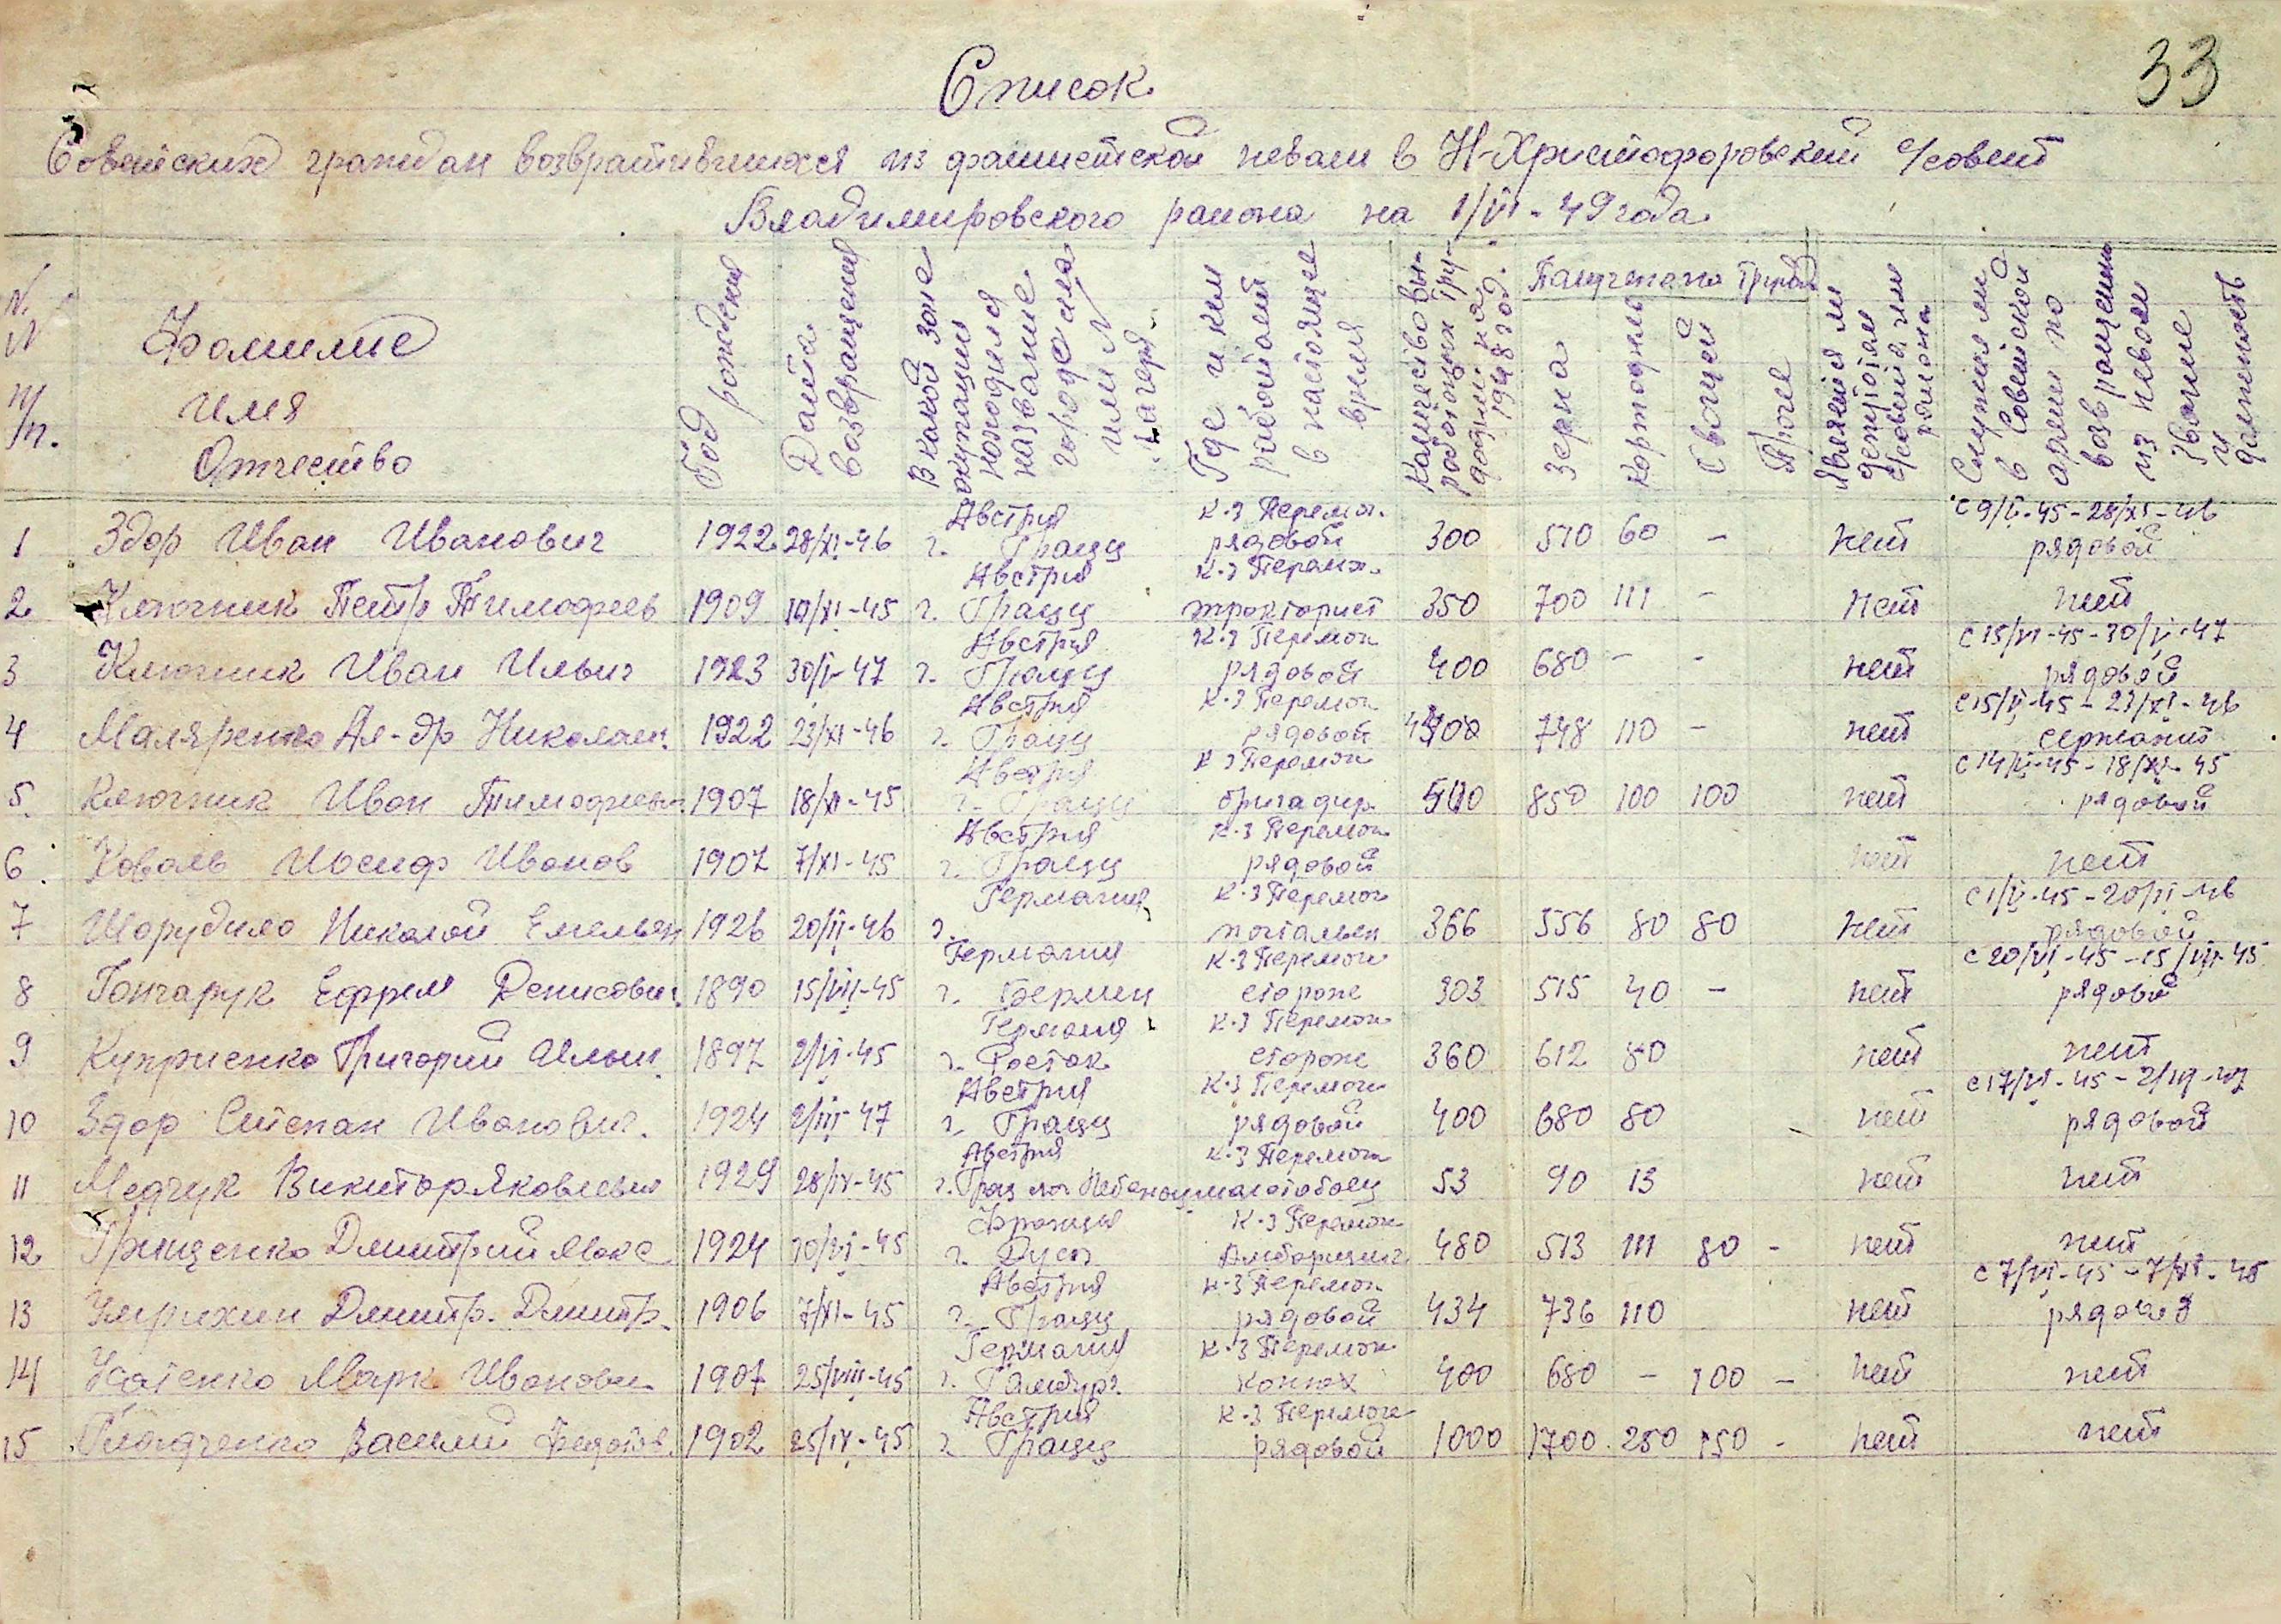 33
Список
Советских граждан возвратившихся из фашисткой неволи в Н-Христофоровский с/совет
Владимировского района на 1/VI-49 года
N. N п/п.
Фамилие Имя Отчество
Год рождения
Дата возвращения
В какой зоне окупации находился название города села или лагеря
Где и кем работает в настоящее время
Количество выработаных трудодней на 1948 год.
Получено на трудод
зерна
картофиль
Овощей
Проче
Является ли депутатам с/совета или района
Служил ли в Советской армии по возвращении из неволи Звание и должность
1 Здор Иван Иванович 1922 28/XI-46 Австрия г. Грацц к-з Перемог. рядовой 300 510 60 - нет с 9/V-45-28/XI-46 рядовой
2 Ключник Петр Тимофеев 1909 10/XI-45 Австрия г. Грацц к-з Перамог. тракторист 350 700 111 - нет нет
3 Ключник Иван Ильич 1923 30/V-47 Австрия г. Грацц к-з Перемог рядовой 400 680 - - нет с 15/VI-45-30/V-47 рядовой
4 Маляренко Ал-др Николаич. 1922 23/XI-46 Австрия г. Грацц к-з Перемог рядовой 400 748 110 - нет с 15/V-45-23/XI-46 сержант
5. Ключник Иван Тимофеевич 1907 18/XI-45 Австрия г. Грацц к-з Перемог бригадир 500 850 100 100 нет с 14/V-45-18/XI-45 рядовой
6. Коваль Иосиф Иванов 1907 7/XI-45 Австрия г. Грацц к-з Перемог рядовой нет нет
7 Шарудило Николай Емельян 1926 20/VI-46 Германия г. к-з Перемог почтальен 366 556 80 80 нет с 1/V-45-20/VI-46 рядовой
8 Гончарук Ефрем Денисович. 1890 15/VII-45 Германия г. Берлин к-з Перемог стороже 303 515 40 - нет с 20/VI-45-15/VII-45 рядовой
9 Куприенко Григорий Ильич 1897 2/VI-45 Германия г. Росток к-з Перемог стороже 360 612 80 нет нет
10 Здор Степан Иванович. 1924 2/III-47 Австрия г. Грацц к-з Перемог рядовой 400 680 80 нет с 17/VI-45-2/III-47 рядовой
11 Медчук Викитор Яковлевич 1929 28/IV-45 Австрия г. Грац к-з Перемог 53 90 13 нет нет
12 Грищенко Дмитрий Макс 1924 10/VI-45 Франция г. к-з Перемог 480 513 111 80 - нет нет
13 Дмитр. Дмитр. 1906 7/XI-45 Австрия г. Грацц к-з Перемог рядовой 434 736 110 нет с 7/VI-45-7/XI-45 рядовой
14 Усатенко Марк Иванович 1907 25/VIII-45 Германия г. Гамбург к-з Перемог конюх 400 680 - 100 - нет нет
15 Гладченко Василий Федотов. 1902 25/IV-45 Австрия г. Грацц к-з Перемог рядовой 1000 1700 250 150 - нет нет